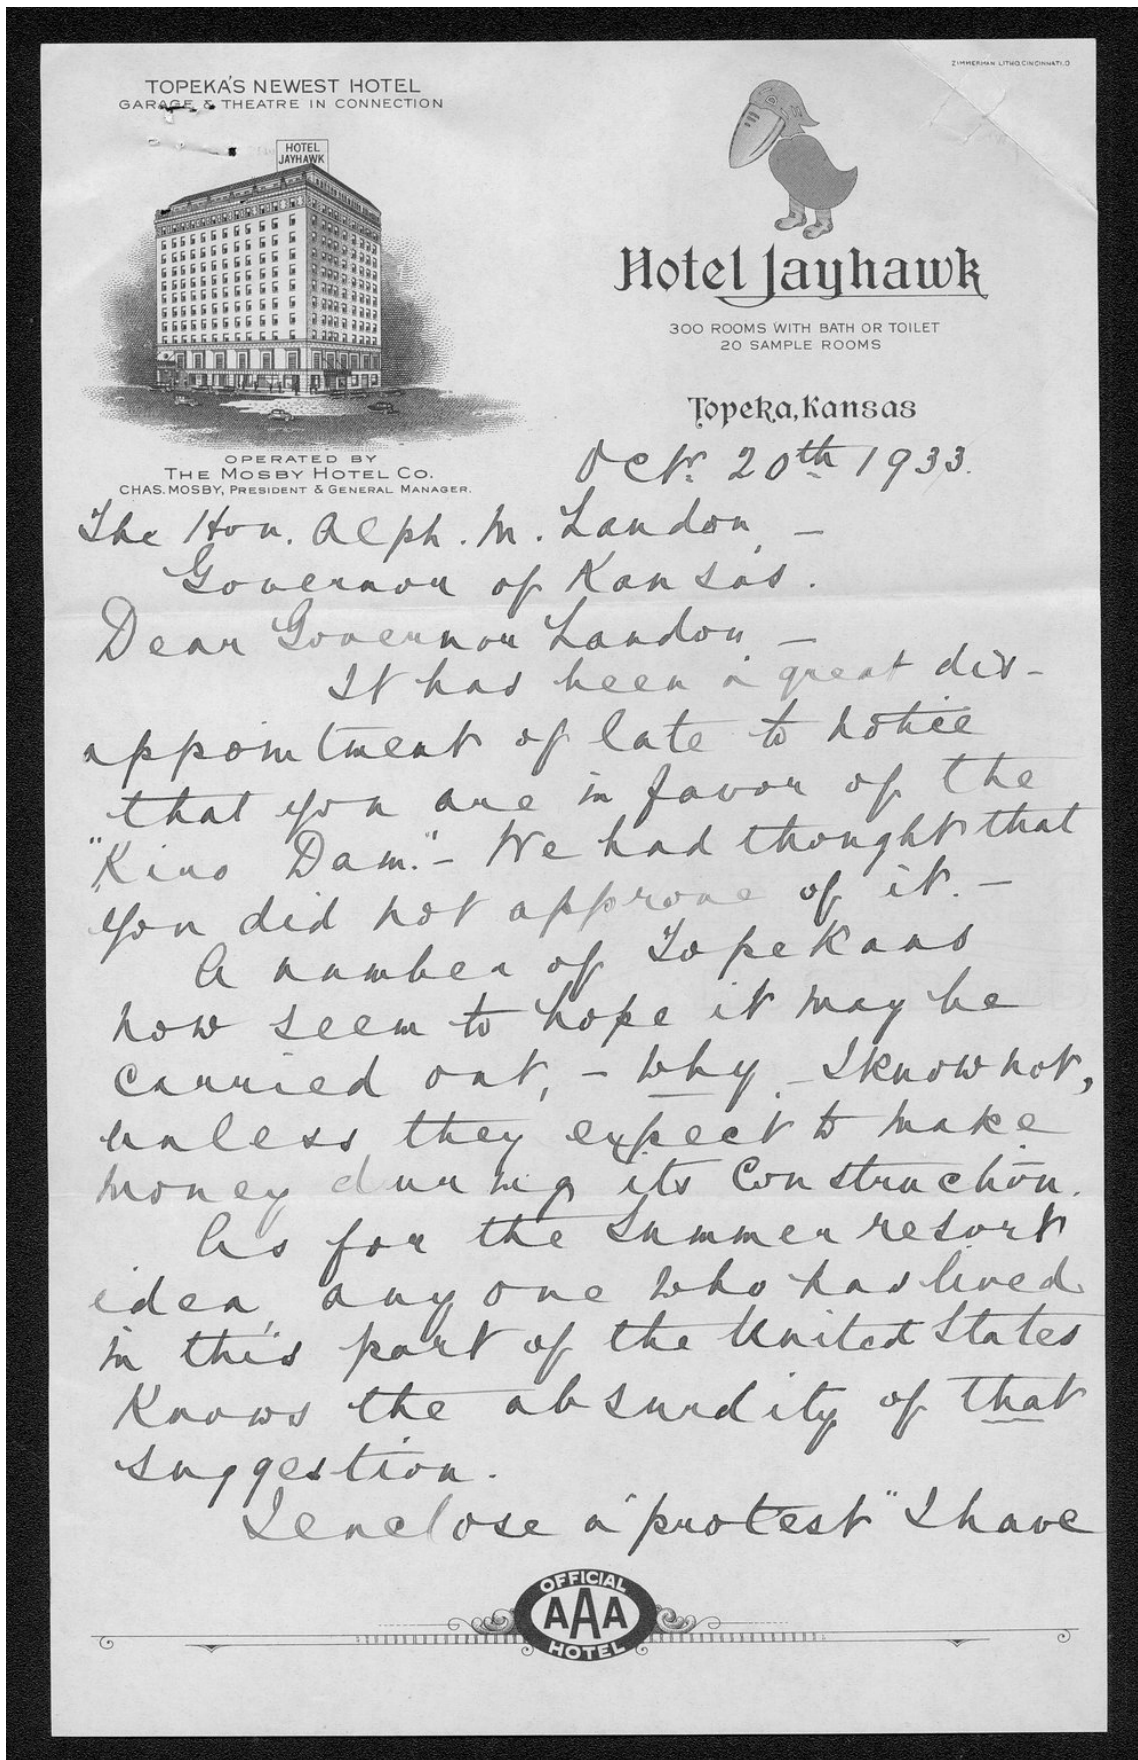 TOPEKA'S NEWEST HOTEL
GARAGE & THEATRE IN CONNECTION
HOTEL
JAYHAWK
OPERATED BY
THE MOSBY HOTEL CO.
CHAS. MOSBY, PRESIDENT & GENERAL MANAGER.
ZIMMERMAN LITHO. CINCINNATI, O
Hotel Jayhawk
300 ROOMS WITH BATH OR TOILET
20 SAMPLE ROOMS
Topeka, Kansas
Octr. 20th 1933.
The Hon. Alph. M. Landon, –
Governor of Kansas.
Dear Governor Landon –
It has been a great dis-
appointment of late to notice
that you are in favor of the
"Kiro Dam." – We had thought that
you did not approve of it. –
A number of Topekans
now seem to hope it may be
carried out, – why – I know not,
unless they expect to make
money during its construction.
As for the summer resort
idea, any one who has lived
in this part of the United States
knows the absurdity of that
suggestion.
I enclose a "protest" I have
OFFICIAL
AAA
HOTEL